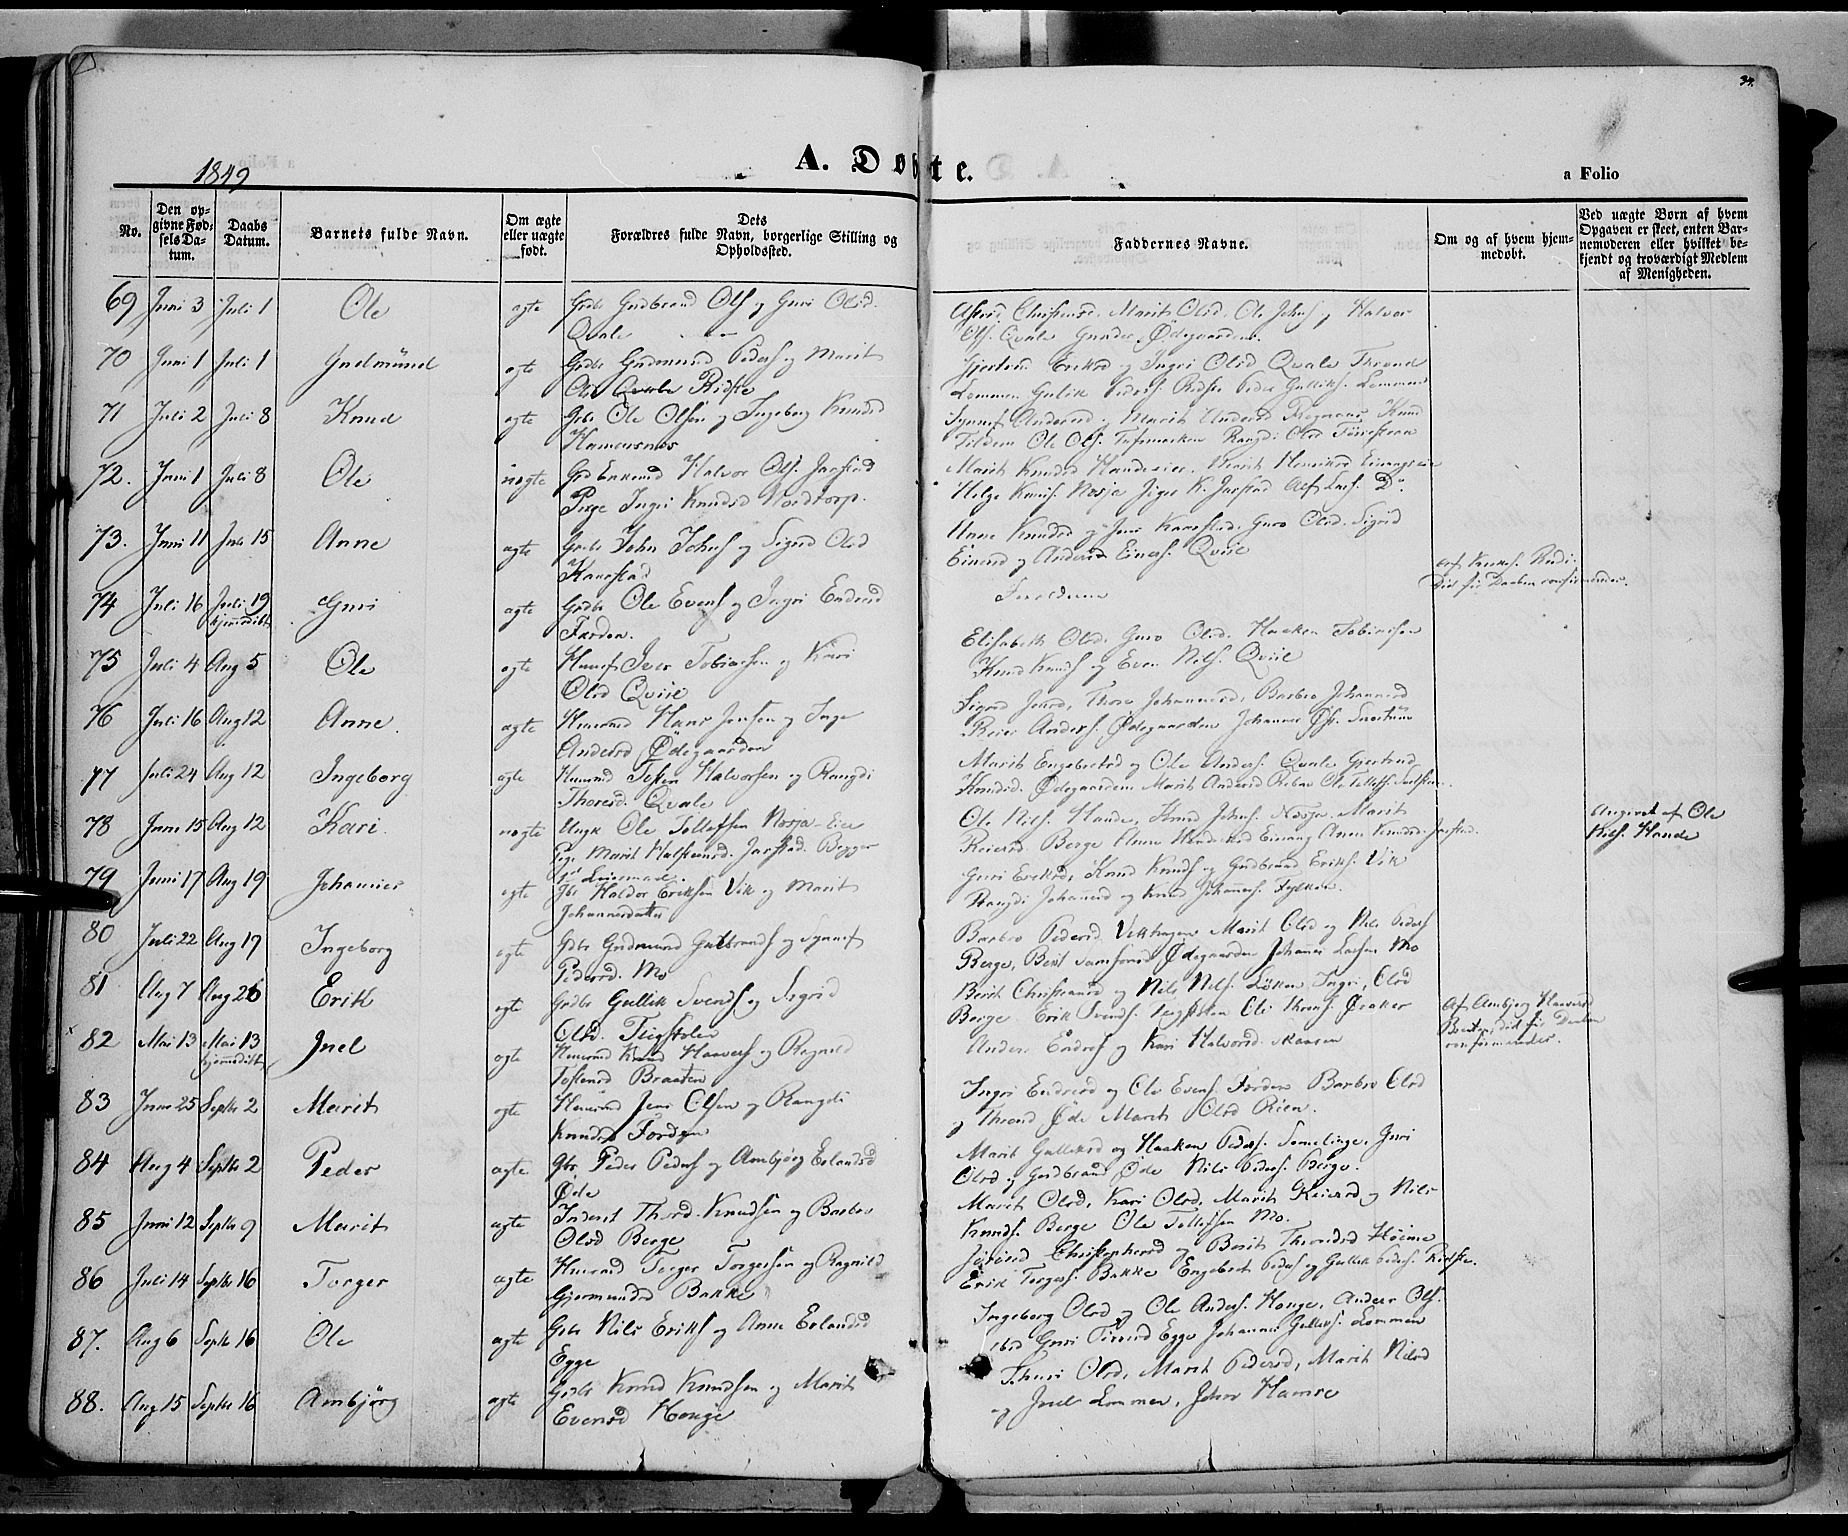 34.
1849
A. Døbte.
a Folio
No.
Den opgivne Fødsels Datum.
Daabs Datum.
Barnets fulde Navn.
Om ægte eller uægte født.
Dets Forældres fulde Navn, borgerlige Stilling og Opholdssted.
Faddernes Navne.
Om og af hvem hjemmedøbt.
Ved uægte Børn af hvem Opgaven er skeet, enten Barnemoderen eller hvilket bekjendt og troværdigt Medlem af Menigheden.
69 Juni 3 Juli 1 Ole ægte Grbr Gudbrand Ols og Guri Olsd.
Qvale
Astrid Christensd. Marit Olsd. Ole Johns og Halvor
Ols. Qvale Gunder Ødegaarden.
70 Juni 1 Juli 1 Gudmund ægte Grbr Gudmund Peders og Marit
Olsd Qvale Ridste
Gjertrud Eriksd og Ingri Olsd Qvale Thrond
Lommen Gulik Peders Ridste Peder Gulliks. Lommen
71 Juli 2 Juli 8 Knud ægte Grbr Ole Olsen og Ingeborg Knudsd
Hamersnes
Synnef Andersd Marit Andersd Knud
Tildem Ole Ols. Rangdi Olsd
72. Juni 1 Juli 8 Ole uægte Halvor Ols. Jarstad
Pige Ingri Knudsd Nordtorp.
Marit Knudsd Berit Henriksd
Helge Knuds. Nøsja Jarstad Lars. Do.
73. Juni 11 Juli 15 Anne ægte Grbr John Johns og Sigrid Olsd
Kanestad
Anne Knudsd og Jens Kanestad, Guro Olsd. Sigrid
Einersd og Anders Einers. Qviie
74 Juli 16 Juli 19 hjemmedøbt Guri ægte Grbr Ole Evens og Ingri Endresd
Førden.
Forældrene
af Knud
Død før Daaben confirmeredes.
75 Juli 4 Aug 5 Ole ægte Iver Tobiasen og Kari
Olsd Qviie
Elisabeth Olsd, Guro Olsd. Haaken Tobiasen
Knud Knuds og Even Nils. Qviie
76 Juli 16 Aug 12 Anne. ægte Huusmd Hans Jensen og Inge
Andersd Ødegaarden
Sigrid Jensd, Thora Johannesd, Barbro Johannesd
Reier Anders. Ødegaarden Johannes
77 Juli 24 Aug 12 Ingeborg ægte Huusmd Halvorsen og Rangdi
Thoresd. Qvale
Marit Engebretsd og Ole Anders. Qvale Gjertrud
Knudsd. Ødegaarden Marit Andersd Ole Tollefs.
78 Juni 15 Aug 12 Kari. uægte Ungk Ole Tollefsen Nøsja-Eie
Pige Marit Halstensd. Jarstad. Begge
Ole Nils. Hande, Knud Johns. Nøsja. Marit
Reiersd. Berge Anne Einang Anne Knudsd. Jarstad.
Angivet af Ole
Nils. Hande
79 Juni 17 Aug 19 Johannes ægte Gbr Haldor Eriksen Vik og Marit
Johannesdatter
Guri Eriksd, Knud Knuds og Gudbrand Eriks. Vik
Rangdi Johannesd og Knud Johannes. Fylken.
80 Juli 22 Aug 17 Ingeborg ægte Gdbr Gudmund Gulbrands og Synnef
Pedersd. Mo
Barbro Pedersd Vikhagen Marit Olsd og Nils Peders
Berge, Berit Samsonsd Ødegaarden Johannes Larsen Mo
81 Aug 7 Aug 26 Erik ægte Grdbr Gullik Svends og Sigrid
Olsd.
Berit Christiansd og Nils Nils. Løken Ingri Olsd
Berge Erik Svends. Ole Thens. Øraker
x
82 Mai 13 Mai 13 hjemmedøbt Joel ægte Huusmd Knud Haavers og Ragnild
Tostensd Braaten
Anders Endres og Kari Halvorsd. Maasen
Af Ambjørg Haaversd
Braaten, død før Daaben
confirmeredes.
83 Juni 25 Septbr 2 Marit ægte Huusmd Jens Olsen og Rangdi
Knudsd Førden
Ingri Endresd og Ole Evens. Førden Barbro Olsd
og Thrond Øde Marit Olsd Rien.
84 Aug 4 Septbr 2 Peder ægte Gbr Peder Peders og Ambjørg Erlandsd
Øde
Marit Gulliksd og Haaken Peders. Semelinge, Guri
Olsd og Gudbrand Øde Nils Peders. Berge.
85 Juni 12 Septbr 9 Marit ægte Inderst Thord Knudsen og Barbro
Olsd Berge
Marit Olsd, Kari Olsd, Marit Reiersd og Nils
Knuds. Berge Ole Tollefsen Mo.
86 Juli 14 Septbr 16 Torger ægte Huusmd Torger Torgersen og Ragnild
Gjermundsd Bakke
Jørand Christophersd og Berit Throndsd Høime
Erik Torgers. Bakke Engebret Peders og Gullik Peders. Ridste.
87. Aug 6 Septbr 16 Ole ægte Grbr Nils Eriks og Anne Erlandsd
Egge
Ingeborg Olsd og Ole Anders. Honge, Anders Ols.
Guri Egge Johannes Gulliks. Lommen
88. Aug 15 Septbr 16 Ambjörg ægte Grdbr Knud Knudsen og Marit
Evensd Honge
Thuri Olsd, Marit Pedersd, Marit Nilsd
og Joel Lommen, John Hamre